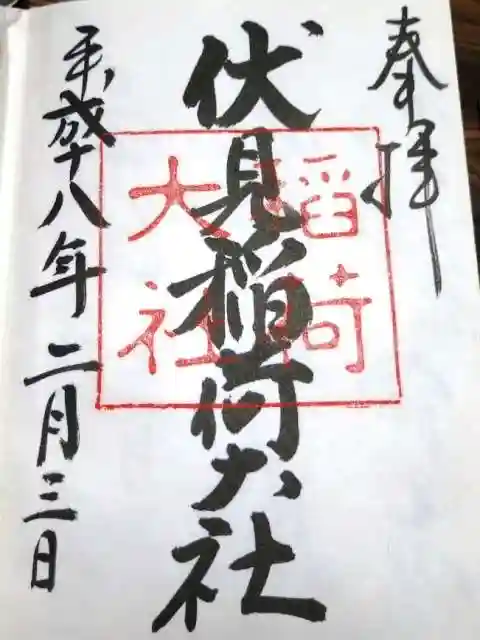 奉拝
伏見稲荷大社
稲荷
大社
平成十八年二月三日